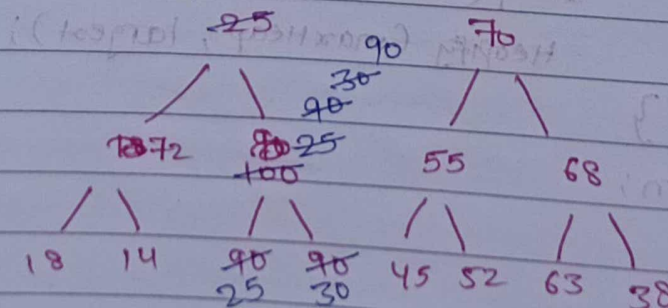 25 70
90
30
90
72 25 55 68
100
18 14 90 90 45 52 63 38
25 30